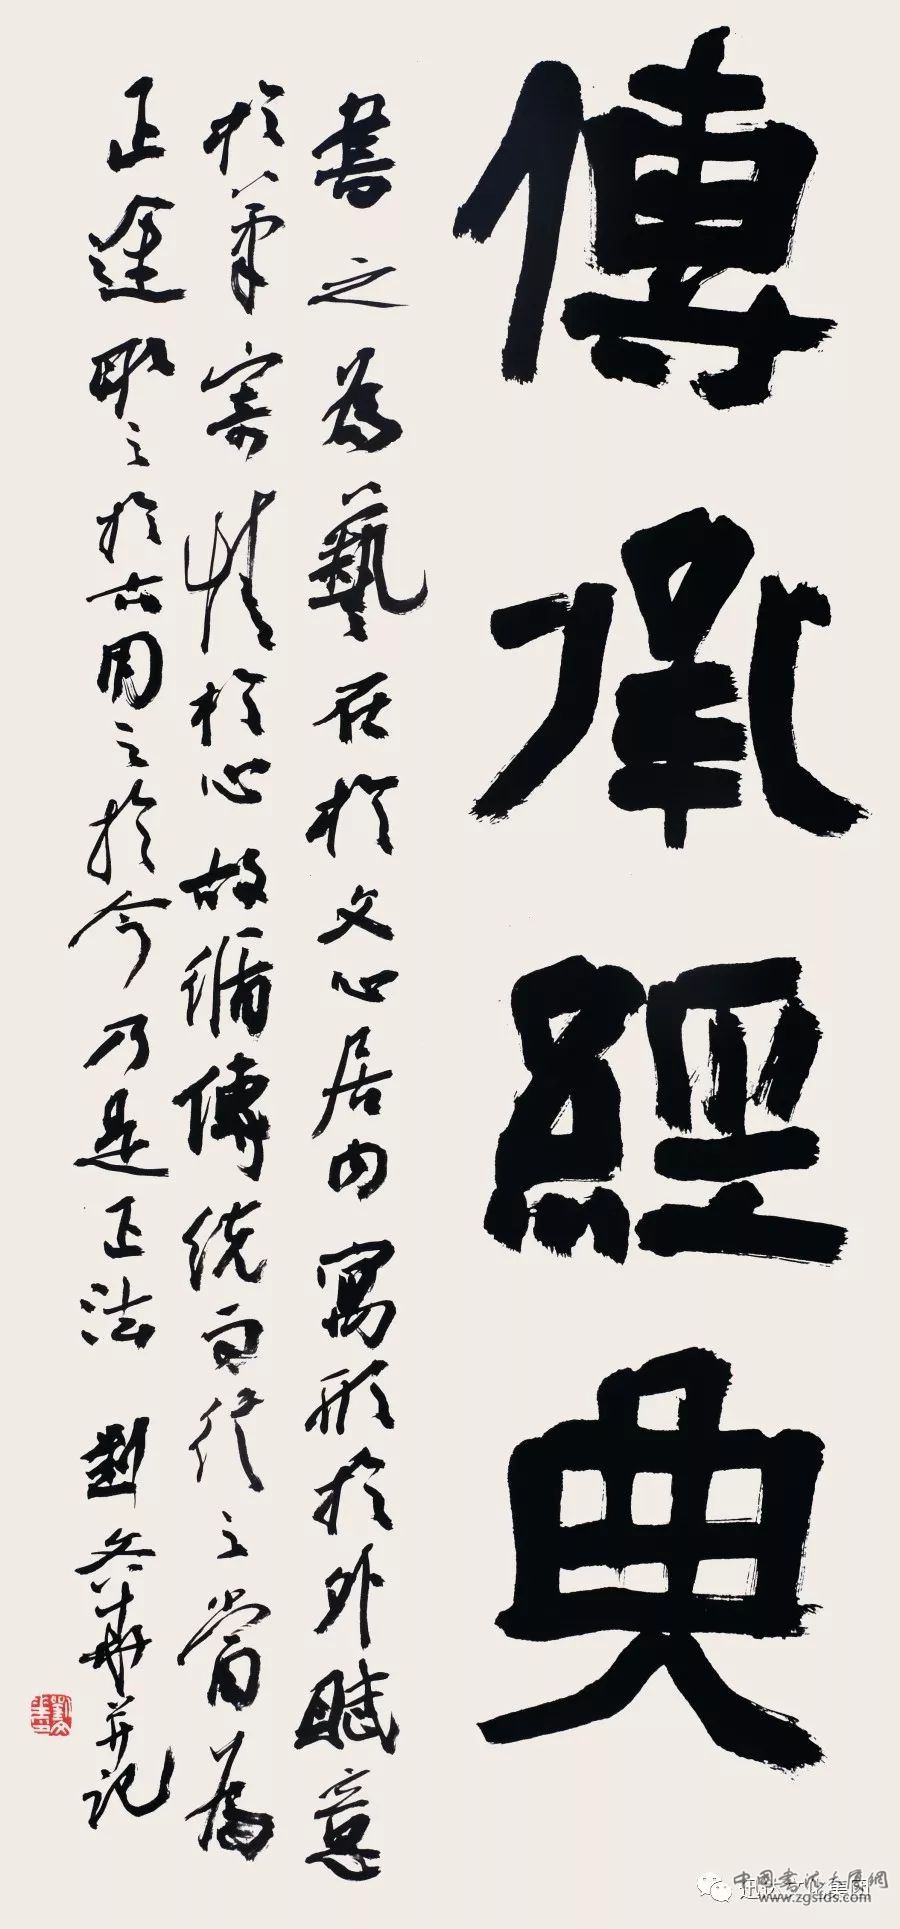 傳承經典
書之為藝在於文心居内寓形於外賦意
於筆寄情於心故循傳統而行之當為
正途取之於古用之於今乃是正法 劉文華并記
中國書法大展網
www.zgsfds.com